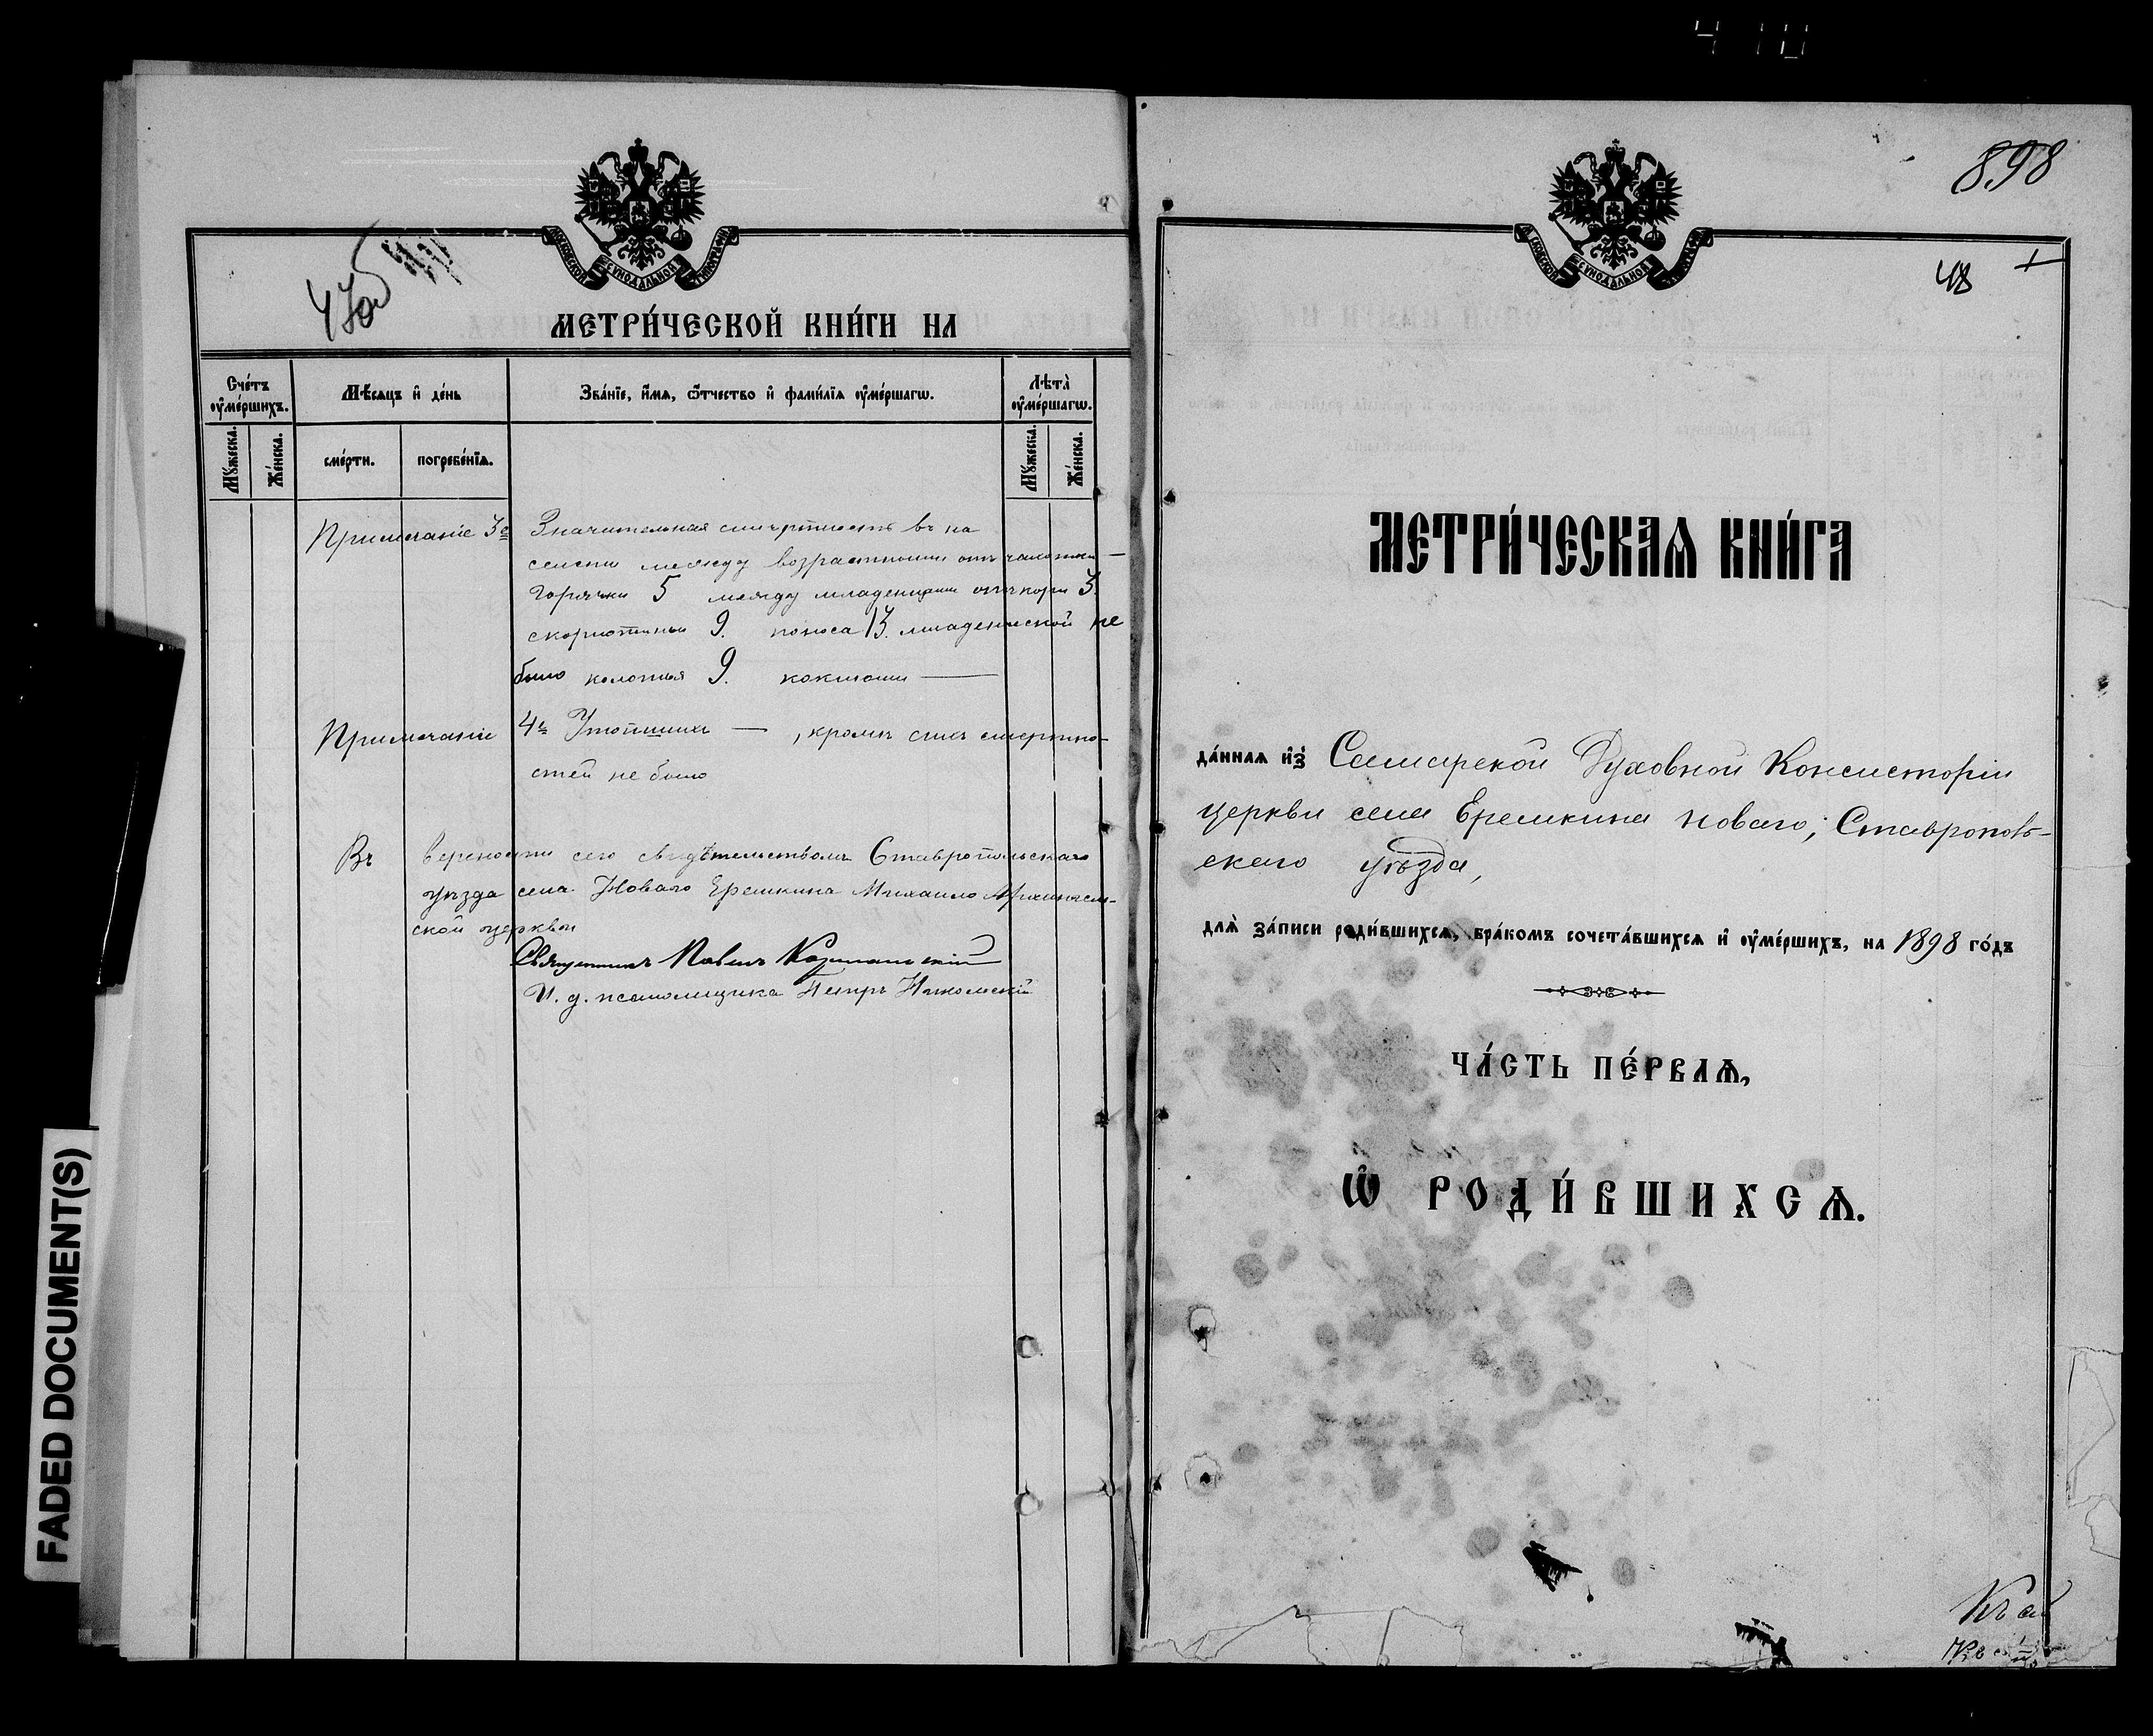 МЕТРИ́ЧЕСКОЙ КНИ́ГИ НА
Сче́тъ ᲂу҆ме́ршихъ.
Мѣ́сяцъ и҆ де́нь
Зва́нїе, и҆́мѧ, ѻ҆́тчество и҆ фами́лїѧ ᲂу҆ме́ршагѡ.
Лѣ́та ᲂу҆ме́ршагѡ.
Мꙋ́жеска.
Же́нска.
сме́рти.
погребе́нїѧ.
Мꙋ́жеска.
Же́нска.
Примечаніе 3е Значительная смертность въ на
селеніи между возрастными отъ чахотки —
горячки 5 между младенцами отъ кори 3.
скорлотины 9. поноса 13. младенческой не
было колотья 9. коклюши —
Примечаніе 4е Утопшихъ — , кромѣ сихъ смертно-
стей не было
Въ верености сего свидѣтельствомъ Ставропольскаго
уѣзда села Новаго Еремкина Михаило Архангель-
ской церкви
Священникъ Павелъ
И. д. псаломщика Петръ Никольскій
898
48
МЕТРИ́ЧЕСКАѦ КНИ́ГА
да́ннаѧ и҆з̾ Самарской Духовной Консисторіи
церкви села Еремкина новаго, Ставрополь-
скаго уѣзда,
длѧ̀ за́писи роди́вшихсѧ, бра́комъ сочета́вшихсѧ и҆ ᲂу҆ме́ршихъ, на 1898 го́дъ
ЧА́СТЬ ПЕ́РВАѦ,
Ѡ҆ РОДИ́ВШИХСѦ.
FADED DOCUMENT(S)